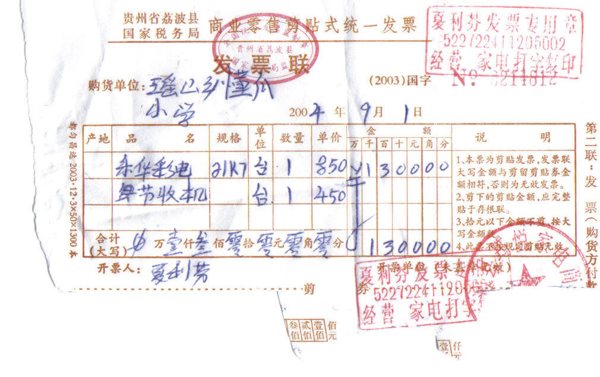 贵州省荔波县
国家税务局
商业零售剪贴式统一发票
贵州省荔波县
发票联
夏利芬发票专用章
522722411205002
经营 家电打字复印
购货单位:
小学
(2003)国字
No 3214612
2004年9月1日
产地 品名 规格 单位 数量 单价 金额 说明
万千百十元角分
乐华彩电 21K7 台 1 850 ¥130000
单节收机 台 1 450
合计(大写) 万壹仟叁佰零拾零元零角零分 130000
1.本票为剪贴发票,发票联
大写金额与剪留剪贴券金
额相符,否则为无效发票。
2.剪下的剪贴金额,应完整
贴于存根联。
3.拾元以下金额不剪,按大
写金额
4.此票不按规定剪贴无效。
开票人:
夏利芬
第二联:发票(购货方付款
都匀易通 2003·12·3×50×1300本
剪 券
夏利芬发票
522722411200
经营 家电打字
叁佰 贰佰 壹佰 佰元
壹仟 仟元